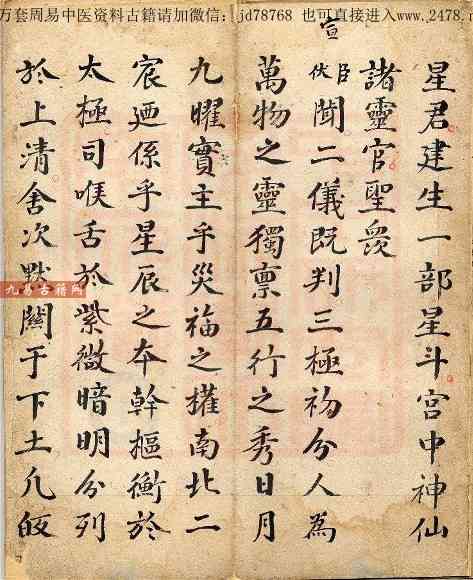 万套周易中医资料古籍请加微信：jd78768 也可直接进入www.2478.
宣
星君建生一部星斗宫中神仙
諸靈官聖眾
臣伏聞二儀既判三極初分人為
萬物之靈獨禀五行之秀日月
九曜實主乎災福之權南北二
宸廼係乎星辰之夲幹樞衡於
太極司喉舌於紫微暗明分列
於上清舍次默関于下土凡
九易古籍网